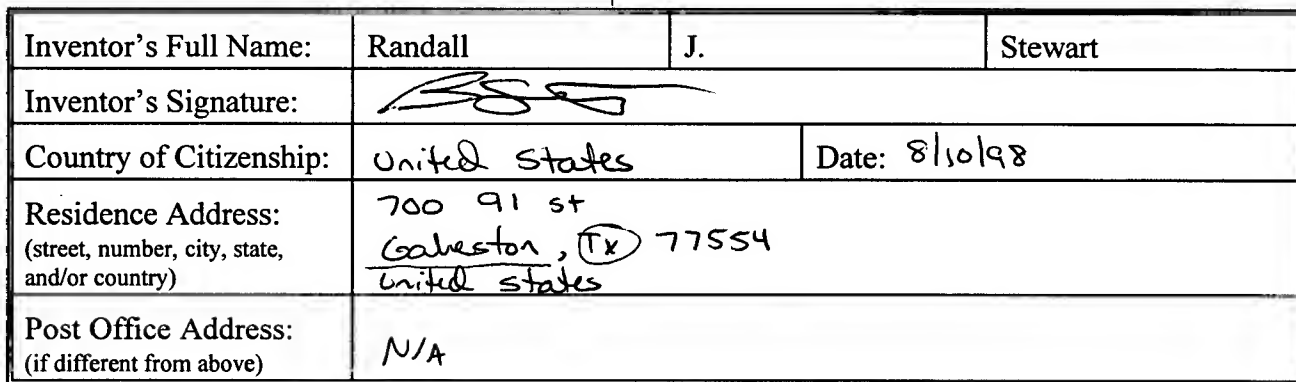 Inventor's Full Name: Randall J. Stewart
Inventor's Signature:
Country of Citizenship: United States Date: 8/10/98
Residence Address: 700 91 st
(street, number, city, state, Galveston, TX 77554
and/or country) United States
Post Office Address:
(if different from above) N/A